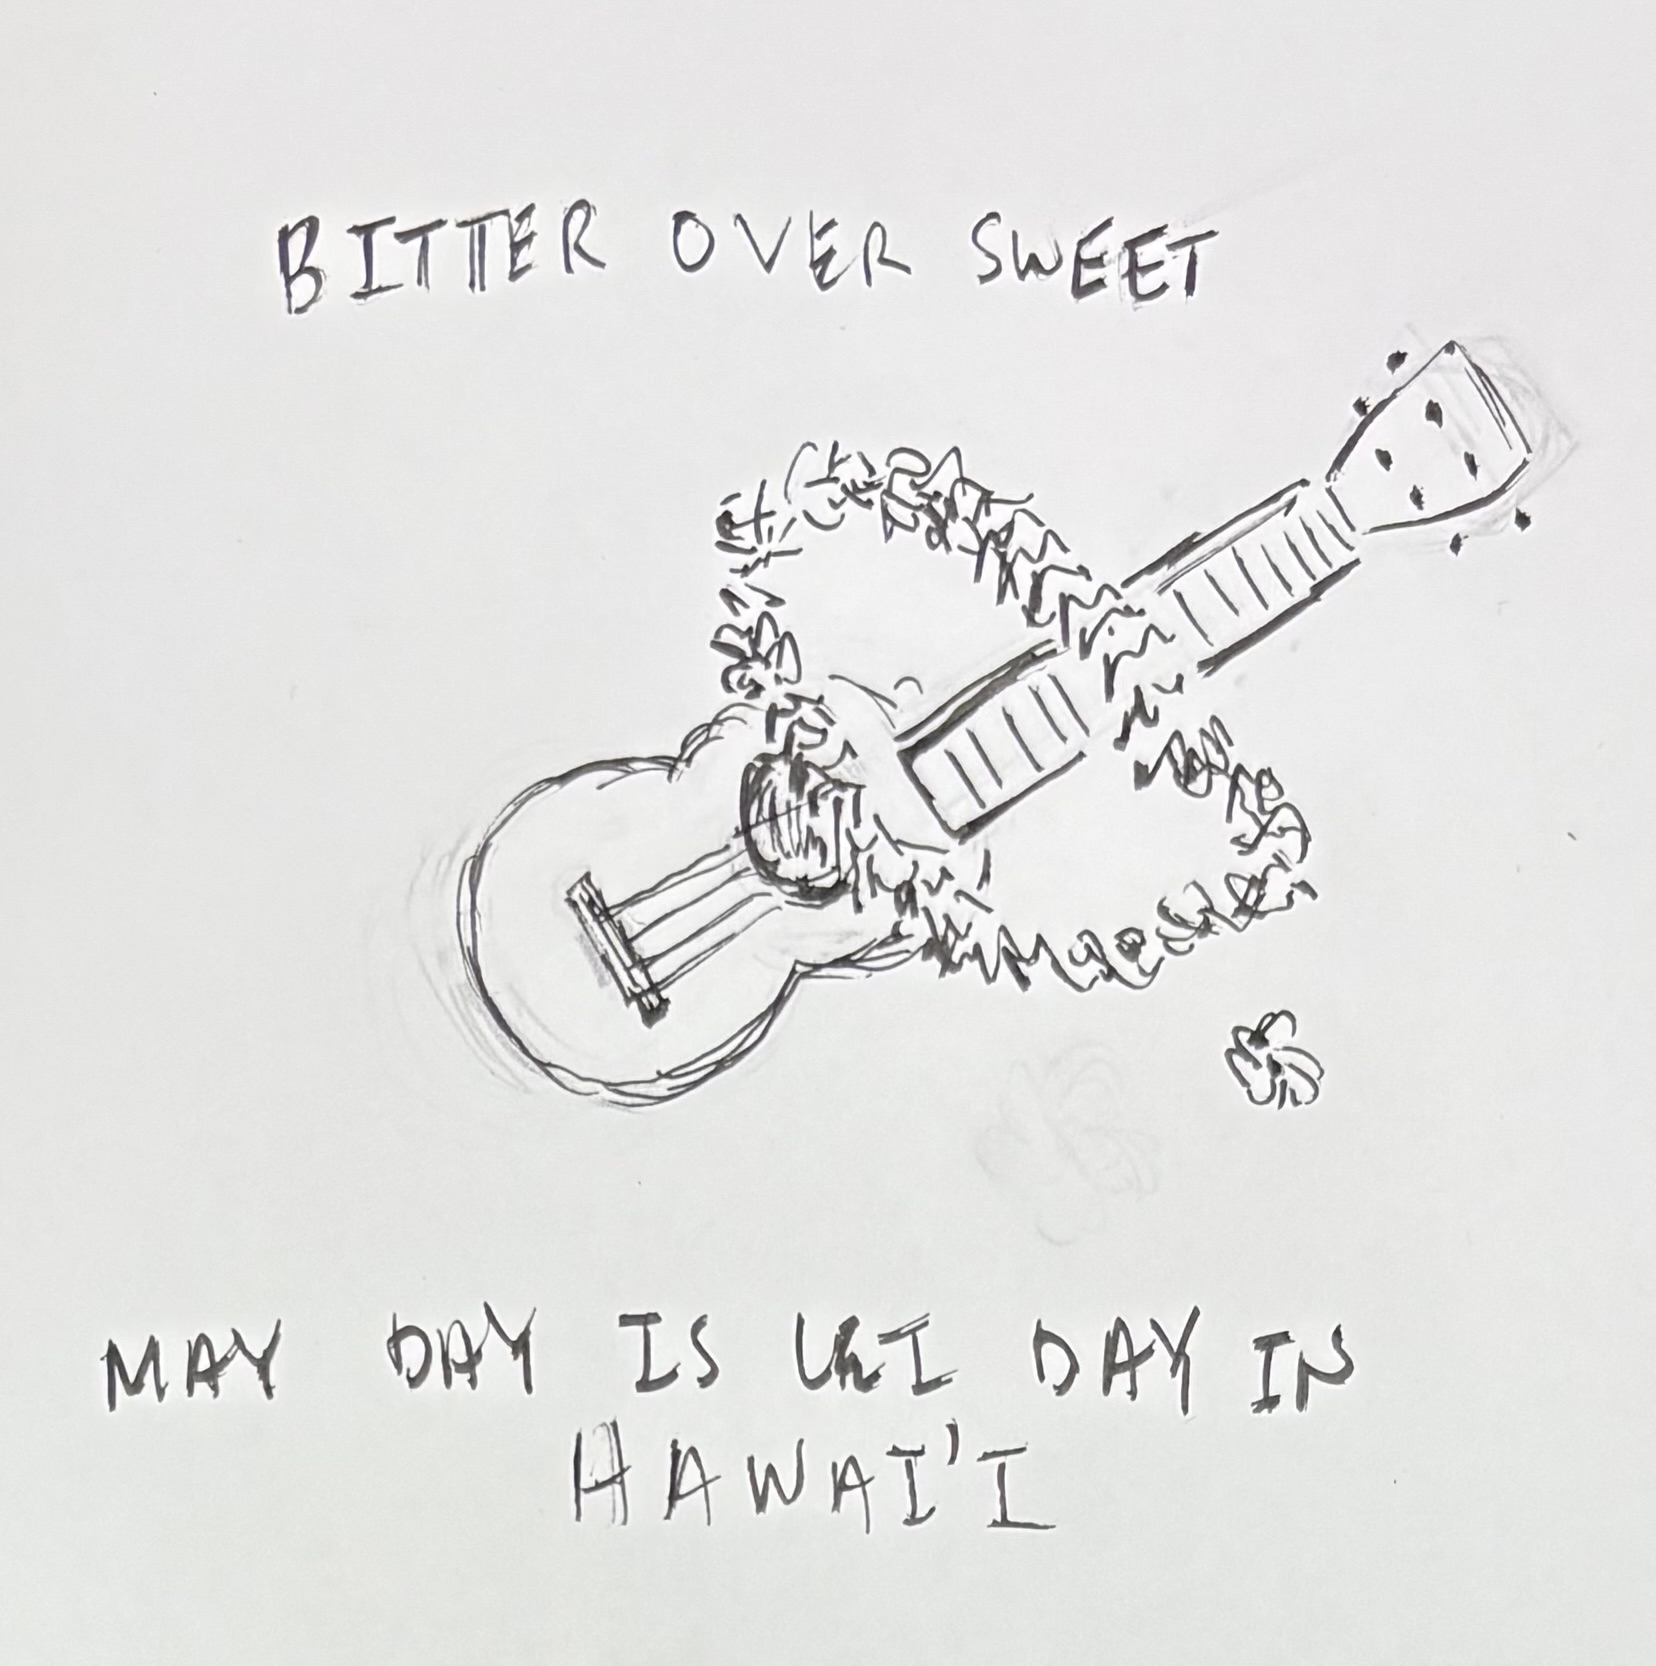 BITTER OVER SWEET
MAY DAY IS LEI DAY IN
HAWAI'I